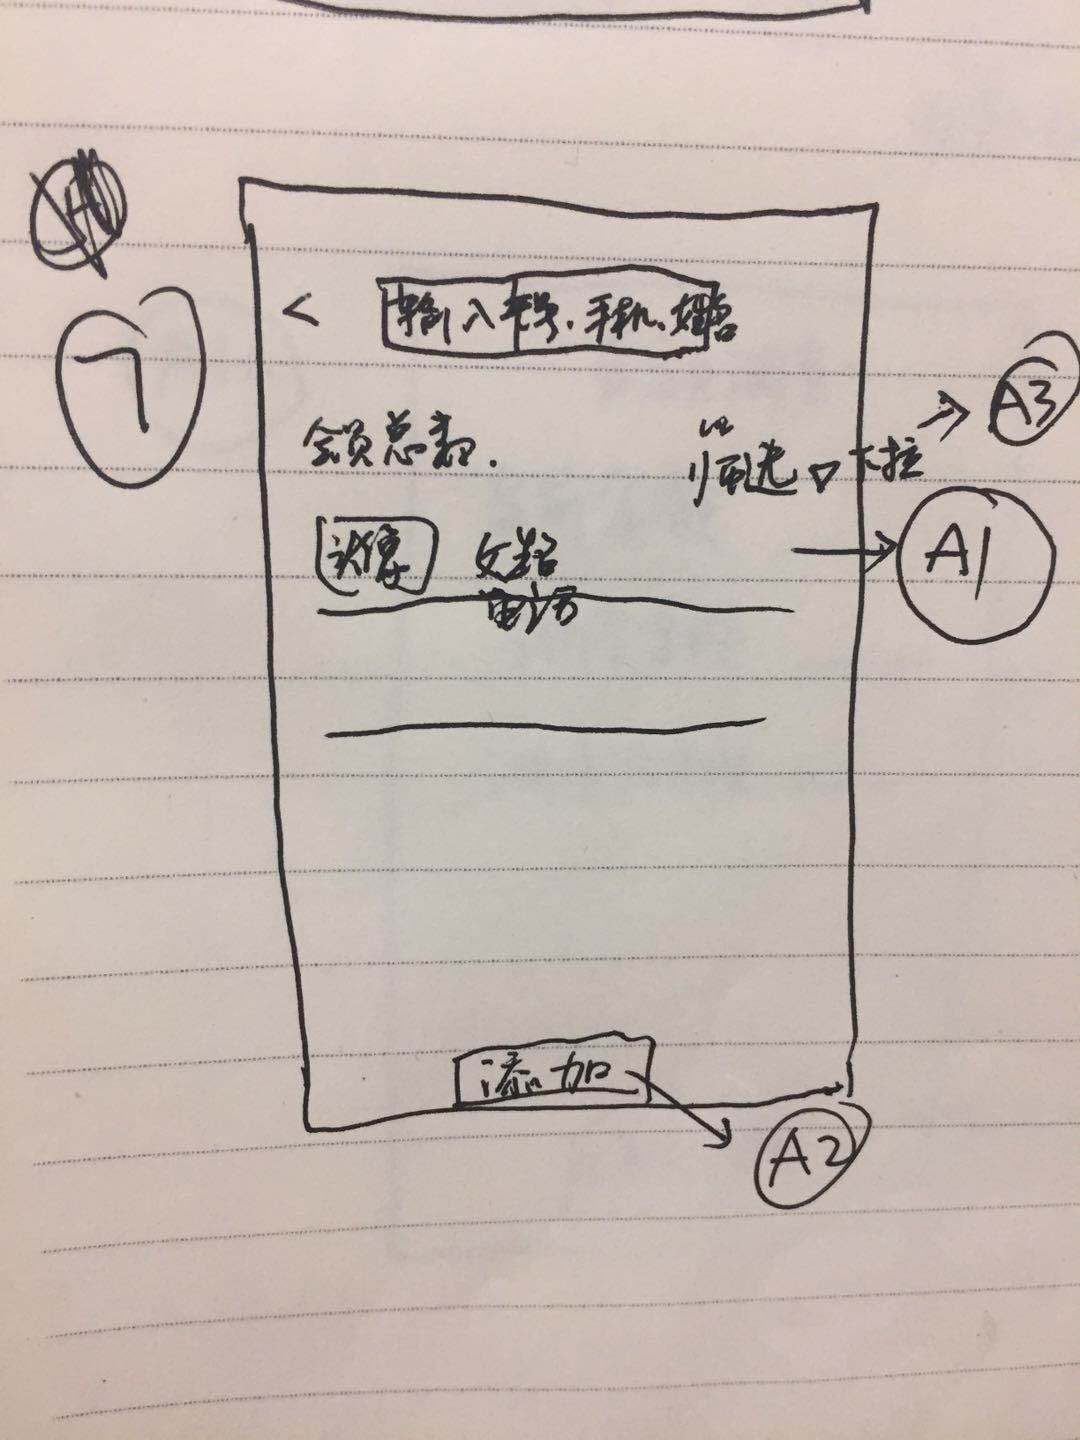 7
<
输入卡号、手机、姓名
会员总数.
筛选▽下拉
→ A3
头像
姓名
电话
→ A1
添加
A2